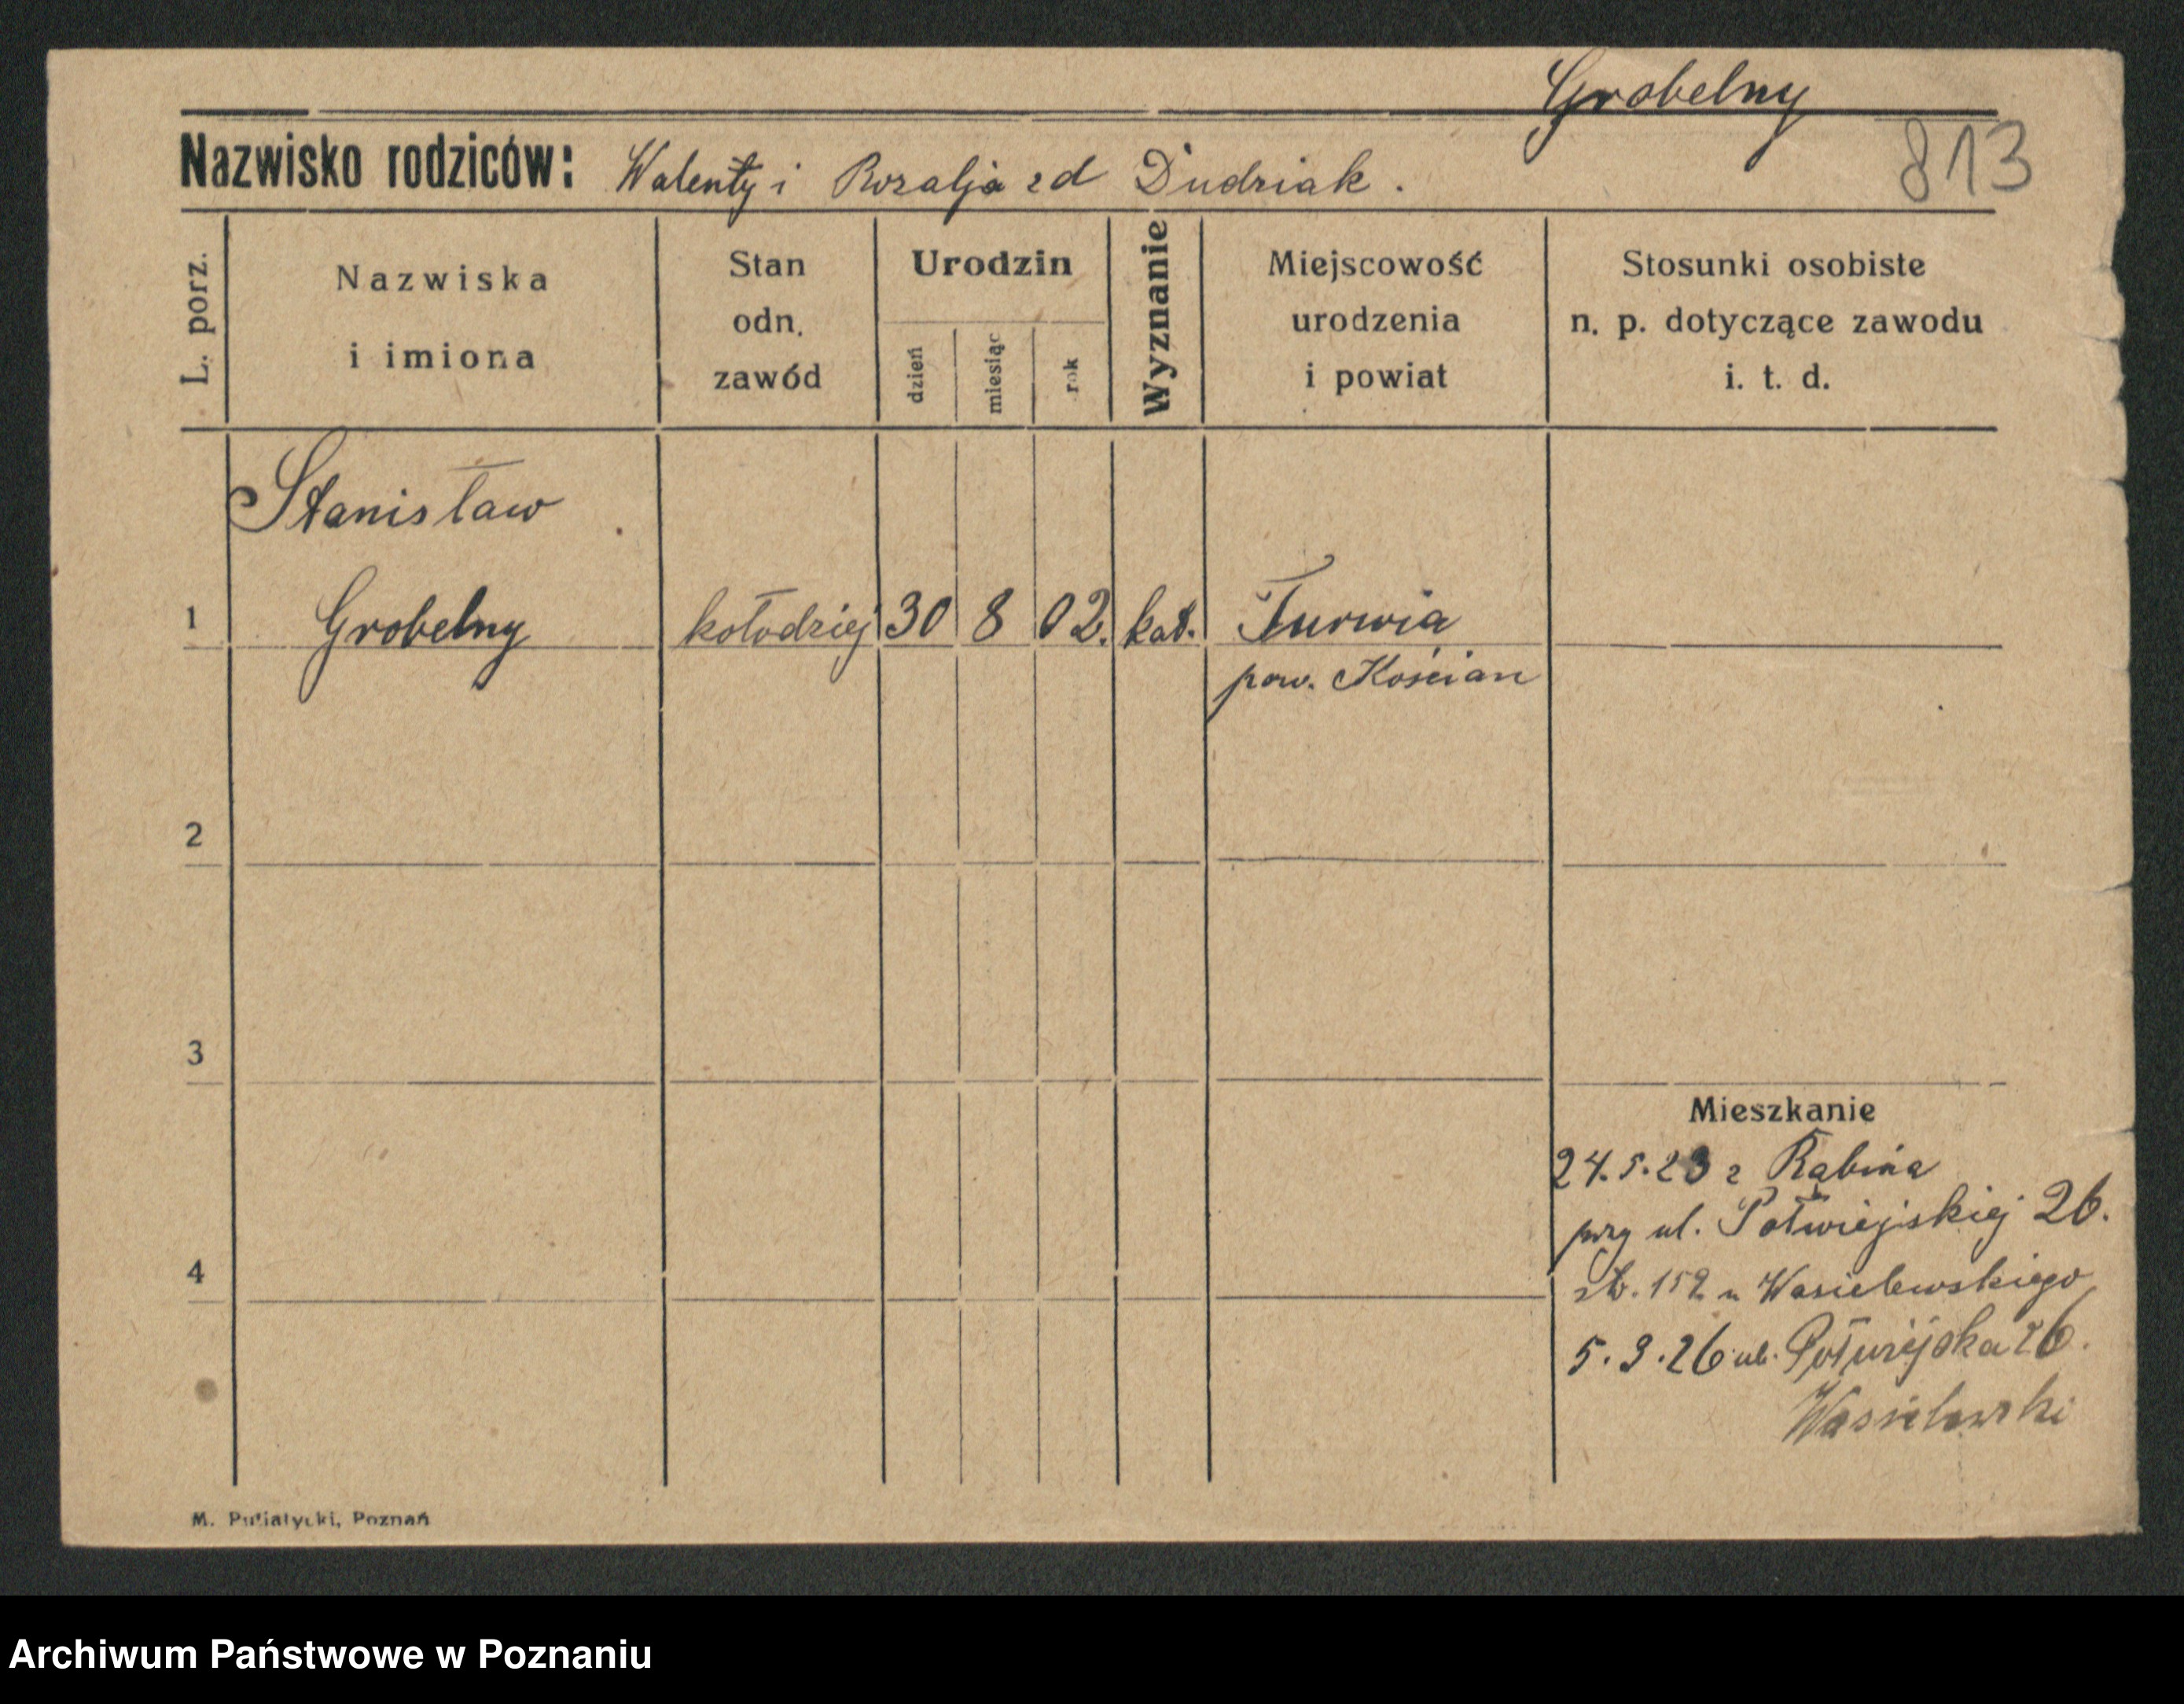 Grobelny
813
Nazwisko rodziców: Walenty i Rozalja zd Dudziak.
L. porz.
Nazwiska
i imiona
Stan
odn.
zawód
Urodzin
dzień
miesiąc
rok
Wyznanie
Miejscowość
urodzenia
i powiat
Stosunki osobiste
n. p. dotyczące zawodu
i. t. d.
Stanisław
1 Grobelny kołodziej 30 8 02. kat. Turwia
pow. Kościan
2
3
Mieszkanie
24.5.23 z Rąbinia
przy ul. Półwiejskiej 26.
4
152 u Wasielewskiego
5.3.26 ul. Półwiejska 26.
Wasielewski
M. Putiatycki, Poznań
Archiwum Państwowe w Poznaniu